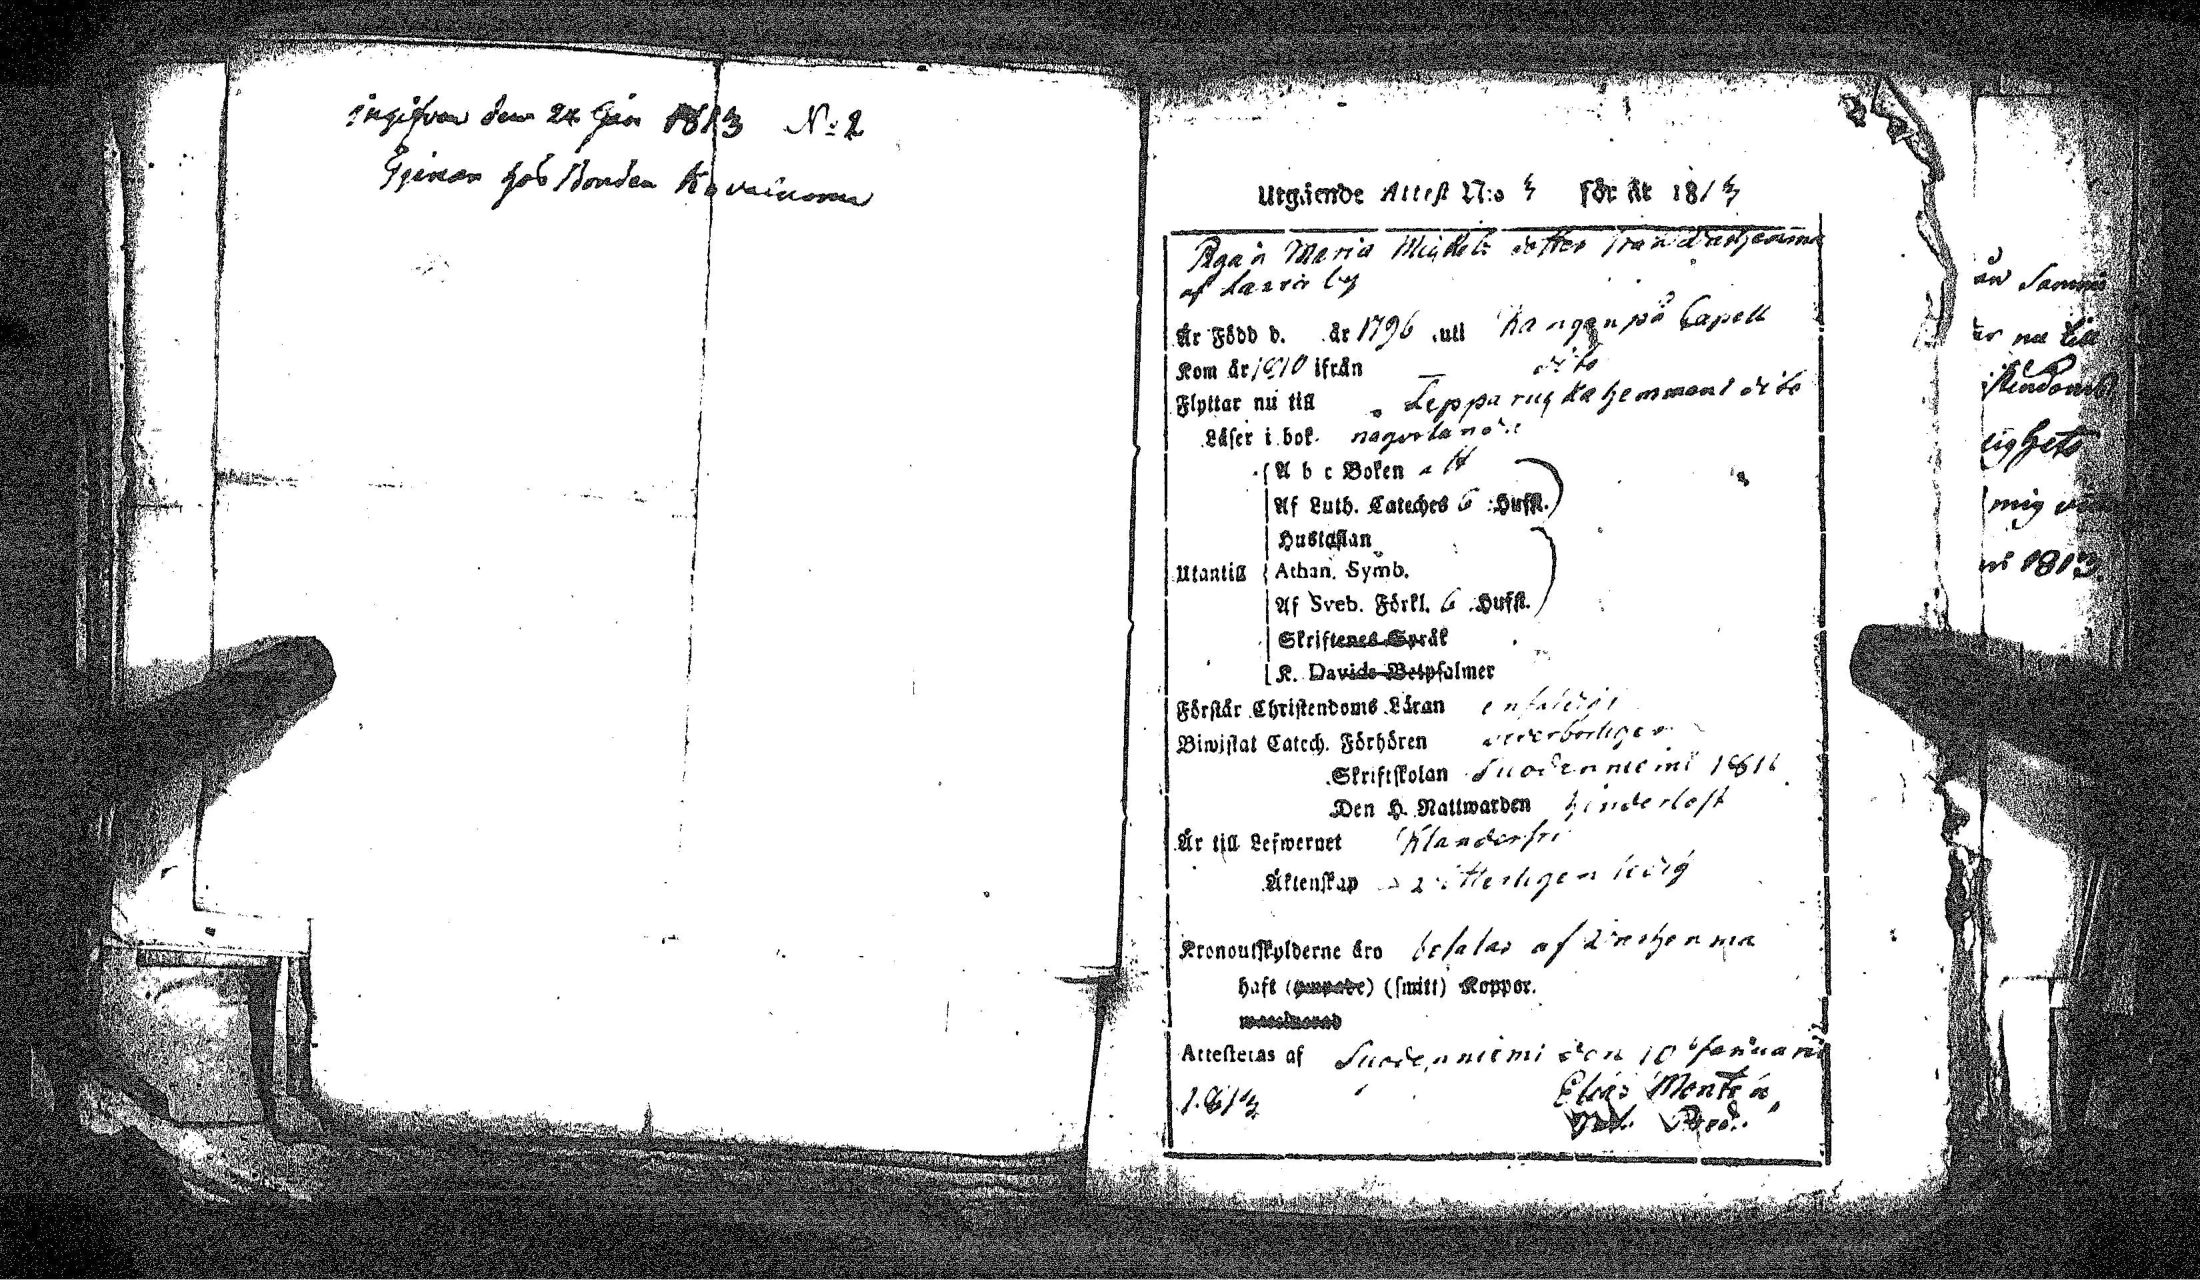 ingifven den 24 Jan 1813 N:o 2
Tjenar hos Bonden
Utgående Attest N:o 3 för år 1813
Pigan Maria Michels dotter från
af by
Är Född d. år 1796 uti Kangenpå Capell
Kom år 1810 ifrån dito
Flyttar nu till Lepparuyka hemmant dito
Läser i bok någorlunda
A b c Boken alt
Af Luth. Cateches 6 Hufst.
Hustaflan
Utantill Athan. Symb.
Af Sveb. Förkl. 6 Hufst.
Skriftenes Språk
K. Davids Botpsalmer
Förstår Christendoms Läran enfaldigt
Biwistat Catech. Förhören vederbörligen
Skriftskolan Suodenniemi 1811
Den H. Nattwarden hinderlöst
Är till Lefwernet Klanderfri
Äktenskap witterligen ledig
Kronoutskylderne äro betalas af
haft (ympade) (smitt) Koppor.
waccinerad
Attesteras af Suodenniemi den 10 Januari
1813 Elias Montén
Vice Past.
Sammа
nu till
ighets
mig
1813